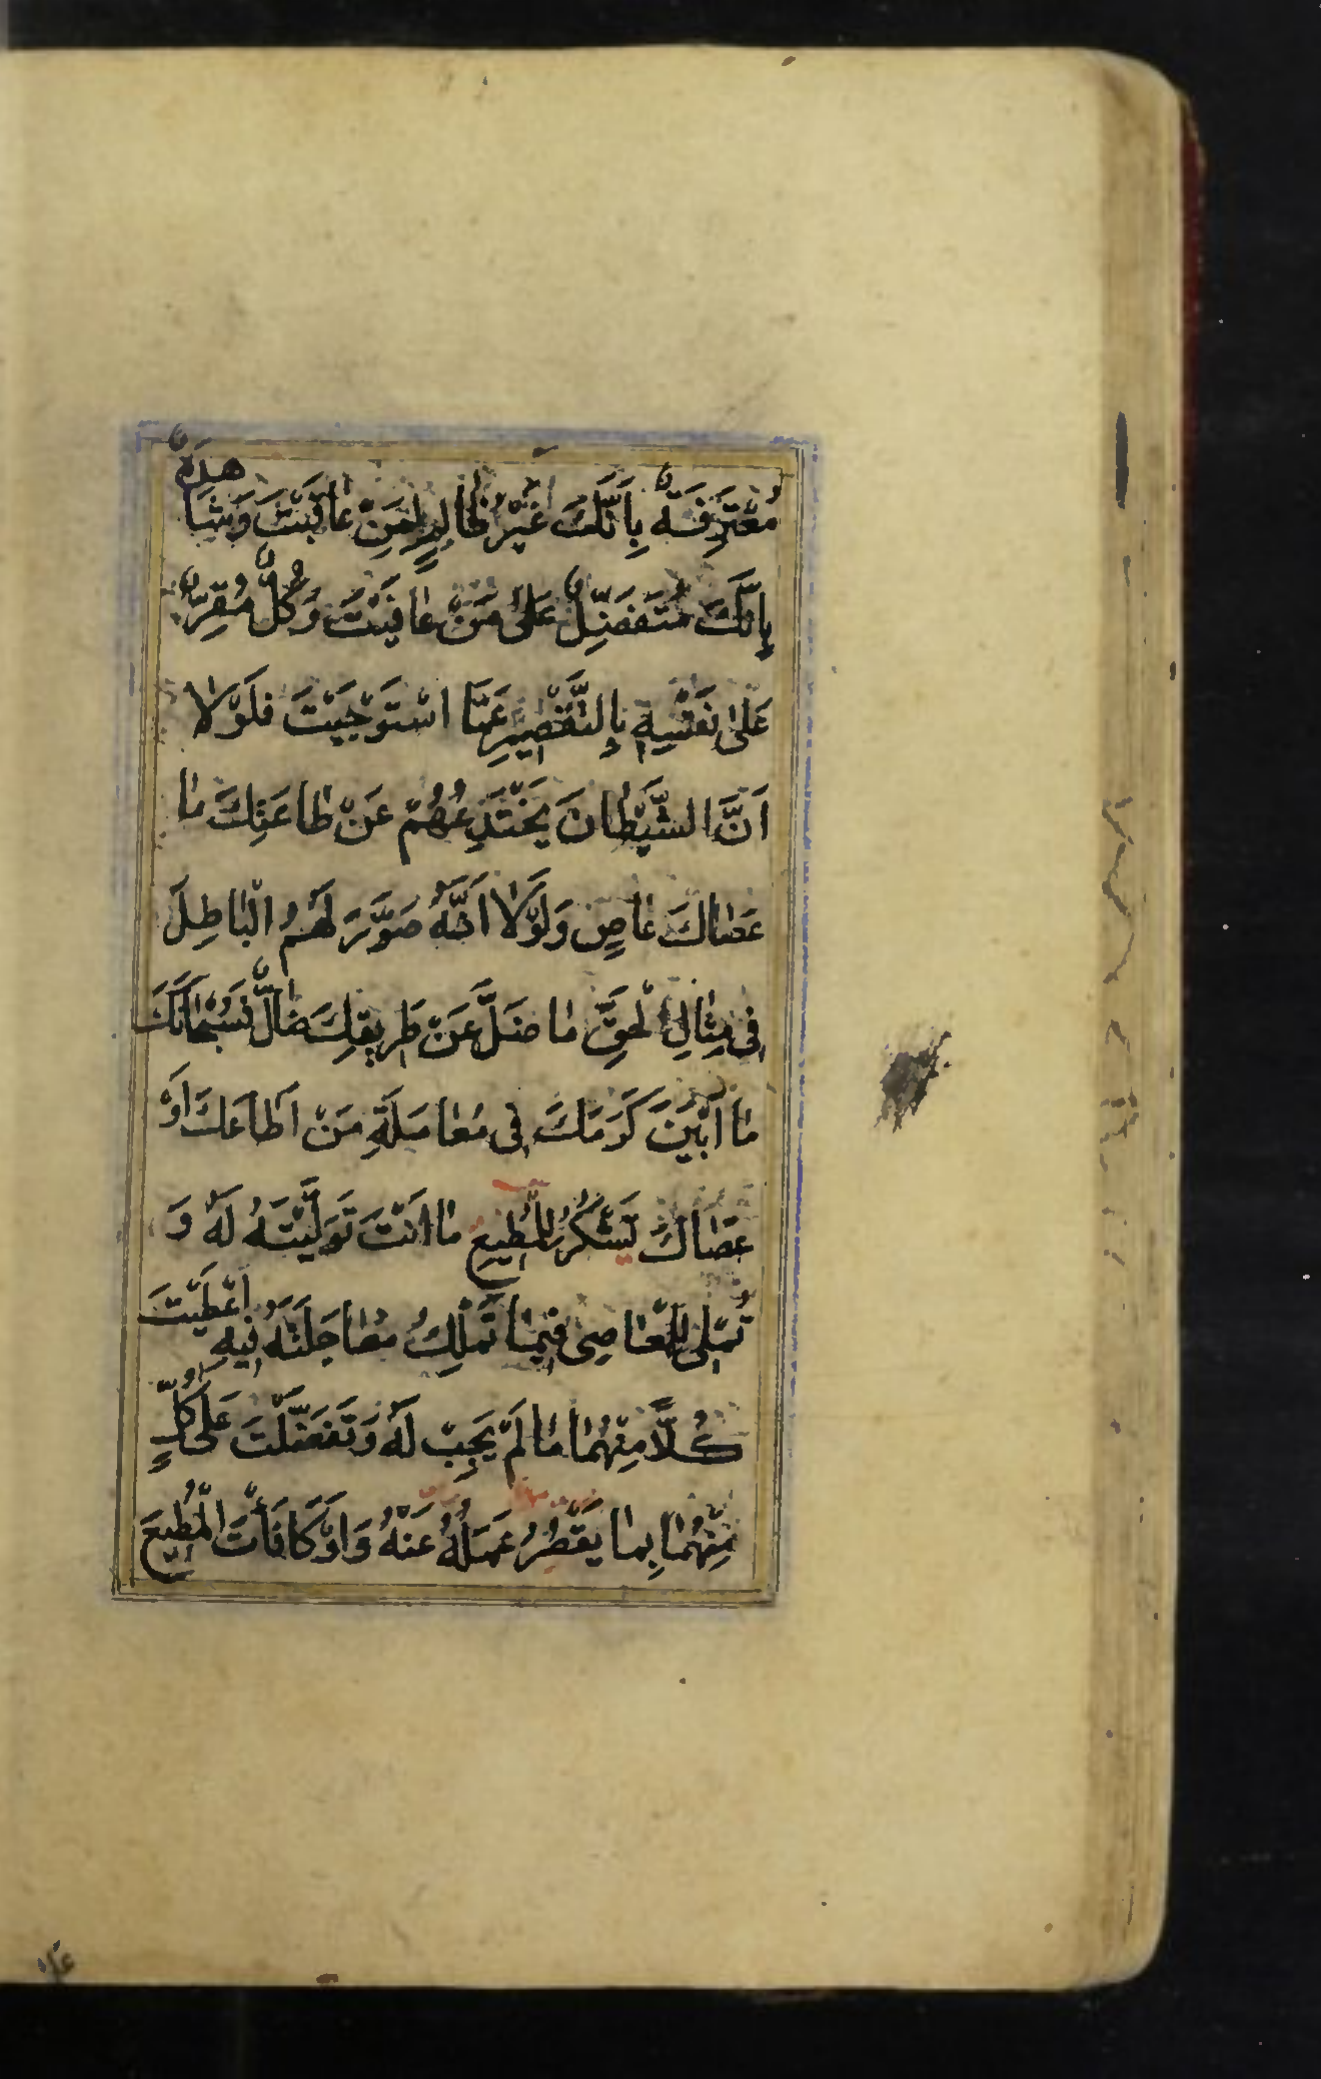 مُعْتَرِفَةٌ بِاَنَّكَ غَيْرُ ظَالِمٍ لِمَنْ عَاقَبْتَ وَشَاهِدَةٌ
بِاَنَّكَ مُتَفَضِّلٌ عَلىٰ مَنْ عَافَيْتَ وَكُلٌّ مُقِرٌّ
عَلىٰ نَفْسِهِ بِالتَّقْصِيرِ عَمَّا اسْتَوْجَبْتَ فَلَوْلا
اَنَّ الشَّيْطَانَ يَخْتَدِعُهُمْ عَنْ طَاعَتِكَ مَا
عَصَاكَ عَاصٍ وَلَوْلا اَنَّهُ صَوَّرَ لَهُمُ الْبَاطِلَ
فِى مِثَالِ الْحَقِّ مَا ضَلَّ عَنْ طَرِيقِكَ ضَالٌّ فَسُبْحَانَكَ
مَا اَبْيَنَ كَرَمَكَ فِى مُعَامَلَةِ مَنْ اَطَاعَكَ اَوْ
عَصَاكَ تَشْكُرُ لِلْمُطِيعِ مَا اَنْتَ تَوَلَّيْتَهُ لَهُ وَ
تُمْلِى لِلْعَاصِى فِيمَا تَمْلِكُ مُعَاجَلَتَهُ فِيهِ اَعْطَيْتَ
كُلًّا مِنْهُمَا مَا لَمْ يَجِبْ لَهُ وَتَفَضَّلْتَ عَلىٰ كُلٍّ
مِنْهُمَا بِمَا يَقْصُرُ عَمَلُهُ عَنْهُ وَلَوْ كَافَأْتَ الْمُطِيعَ